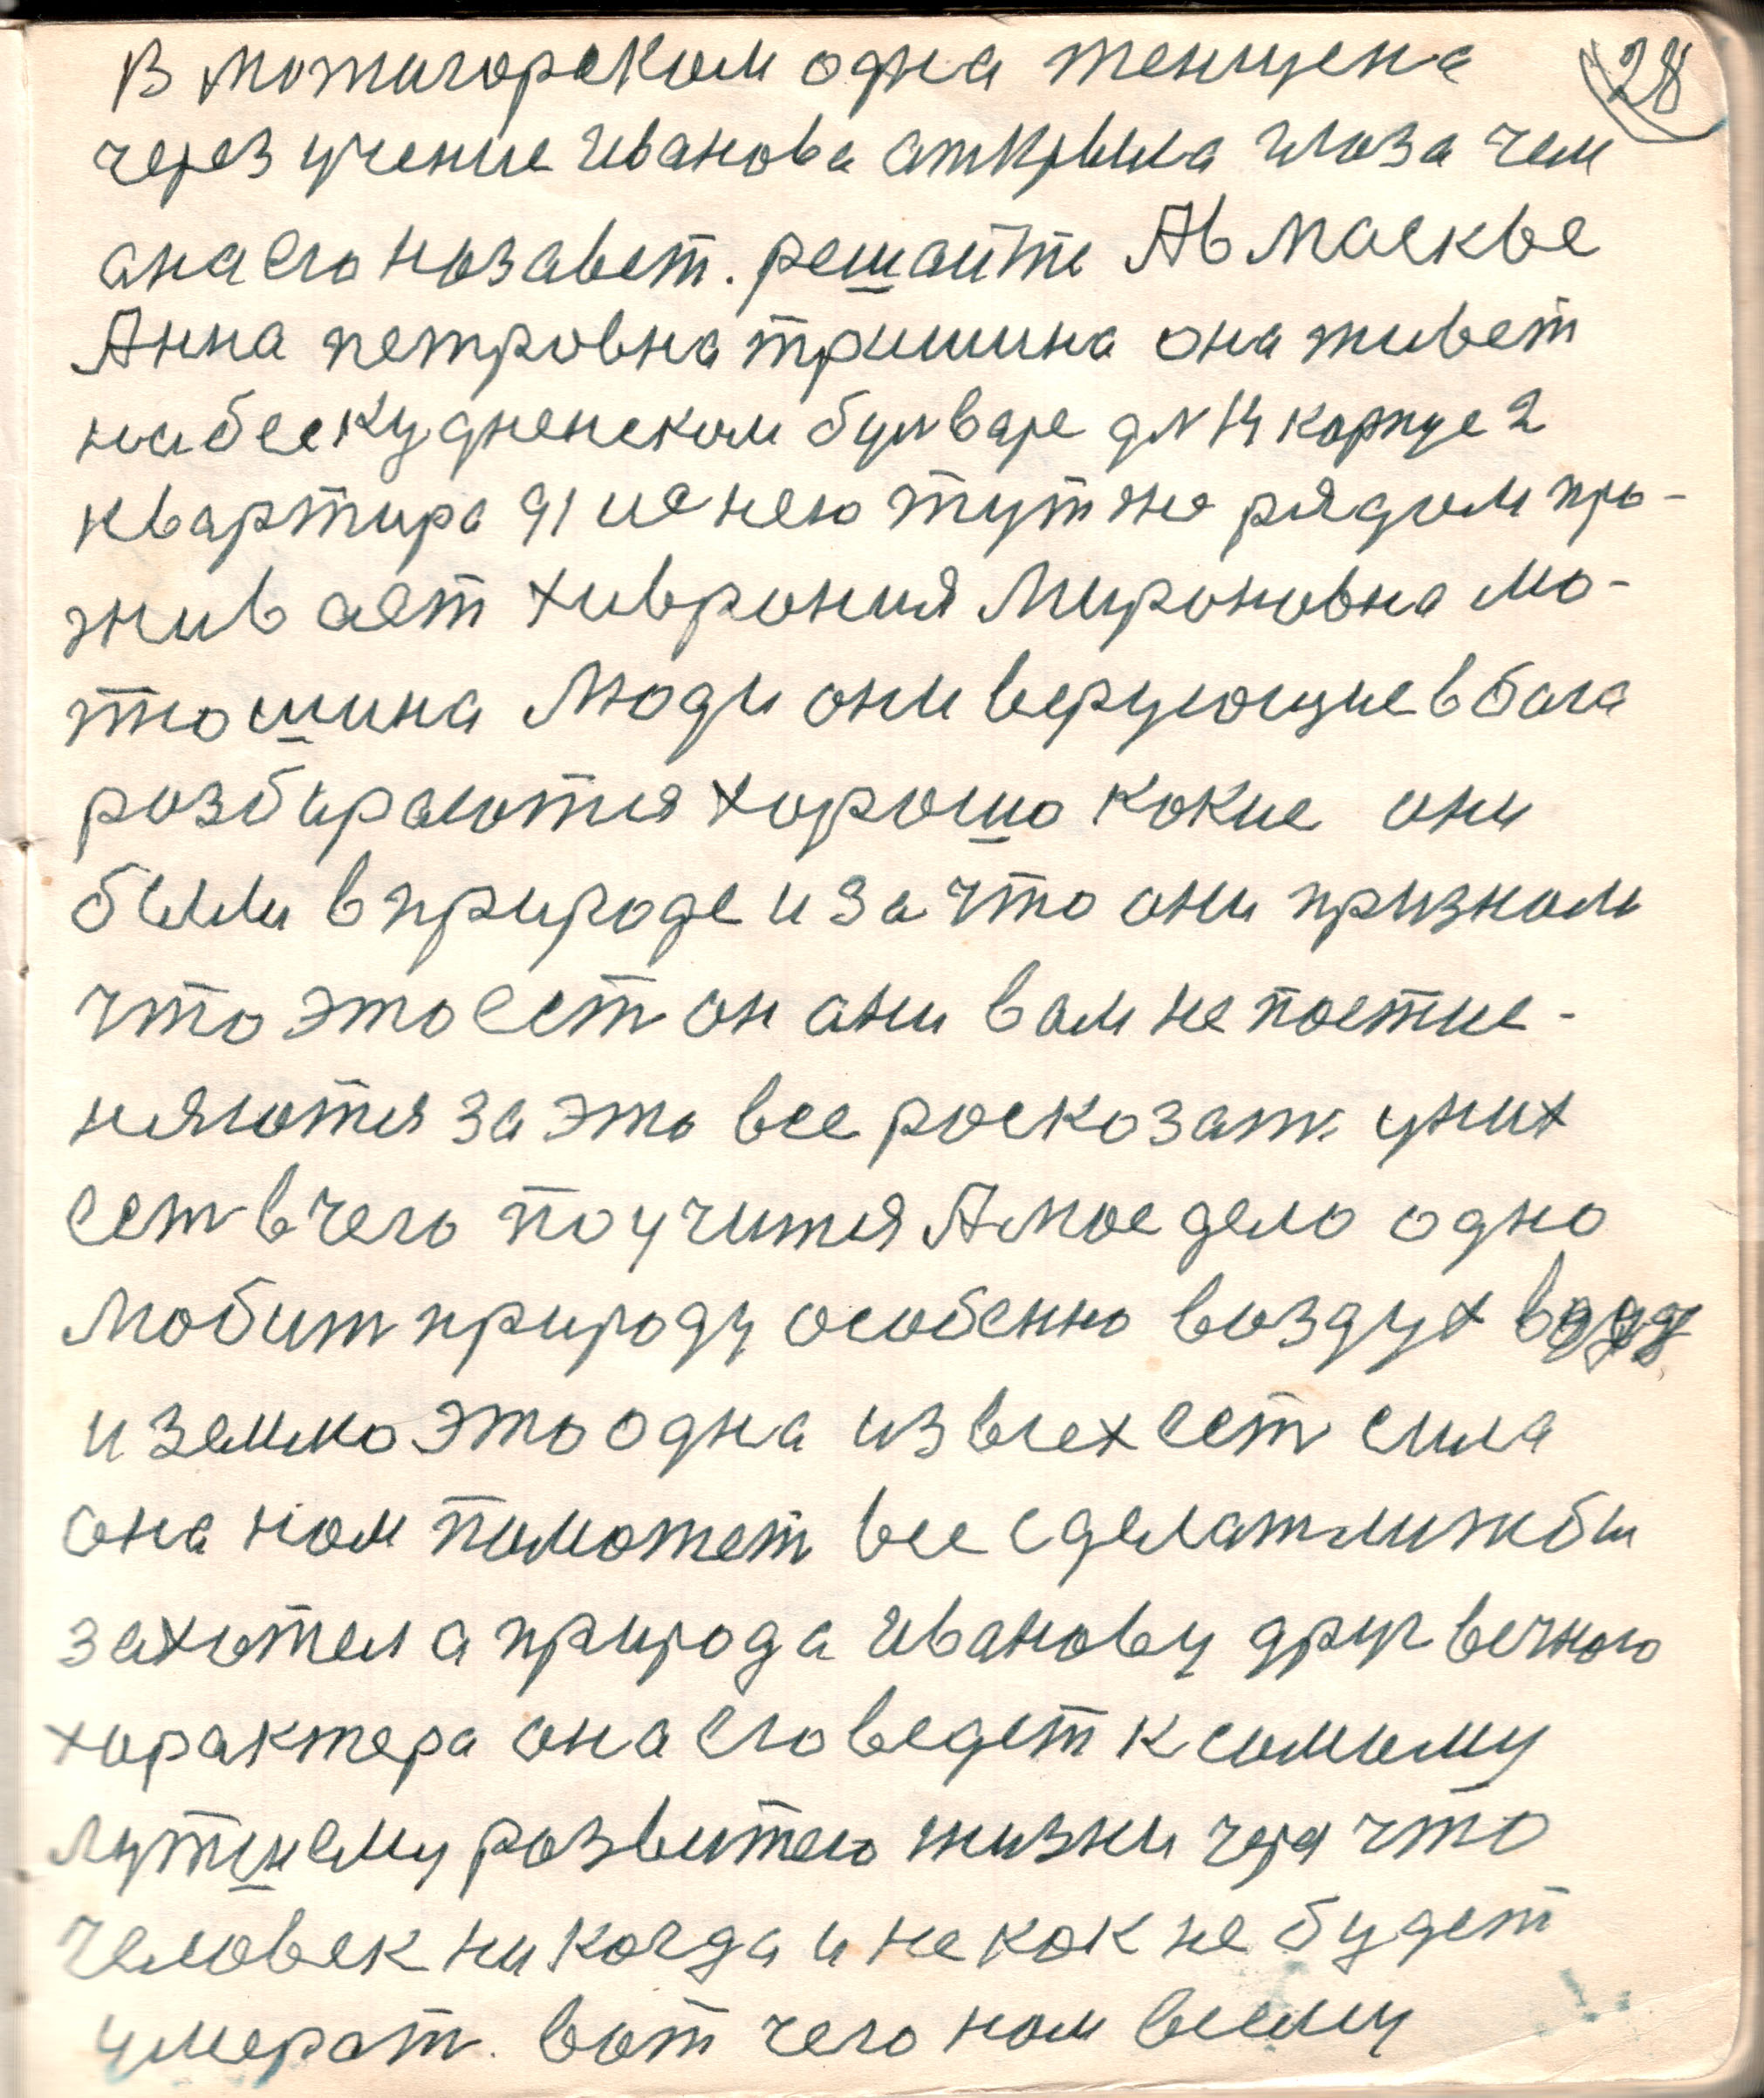 28
В мотигорском одна женщена
через учение Иванова аткрыла глоза чем
ана его незавет. решайте А в Маскве
Анна петровна тришина она живет
на бескудненском булваре д№ 14 корпус 2
квартира 91 и с нею тут же рядом про-
живает хиврония Мироновна мо-
тошина Люди они верующие в бога
розбираются хорошо кокие они
были в природе и за что они признали
что это ест он ани вам не постис-
няются за это все росказат. у них
ест в чего поучится А мое дело одно
Любит природу особенно воздух воду
и землю это одна из всех ест сила
она ном поможет все сделат лиж бы
захотела природа Иванову друг вечного
характера она его ведет к самому
лутшему розвитею жизни черя что
Человек ни когда и не кок не будет
умерат. вот чего ном всему